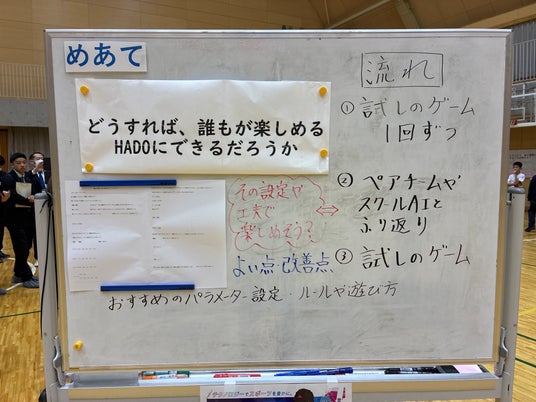 めあて
どうすれば、誰もが楽しめる
HADOにできるだろうか
流れ
① 試しのゲーム
1回ずつ
② ペアチームや
スクールAIと
ふり返り
③ 試しのゲーム
その設定や
工夫で
楽しめそう?
よい点 改善点
おすすめのパラメーター設定・ルールや遊び方
テクノロジーでスポーツを豊かに。